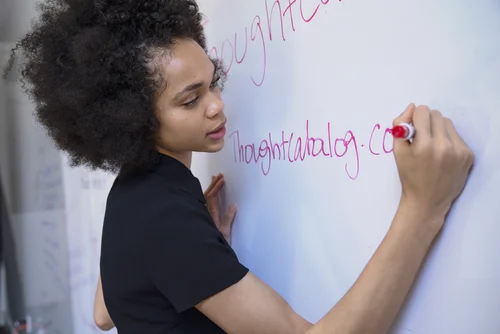 oughtca
Thoughtcabalog.co